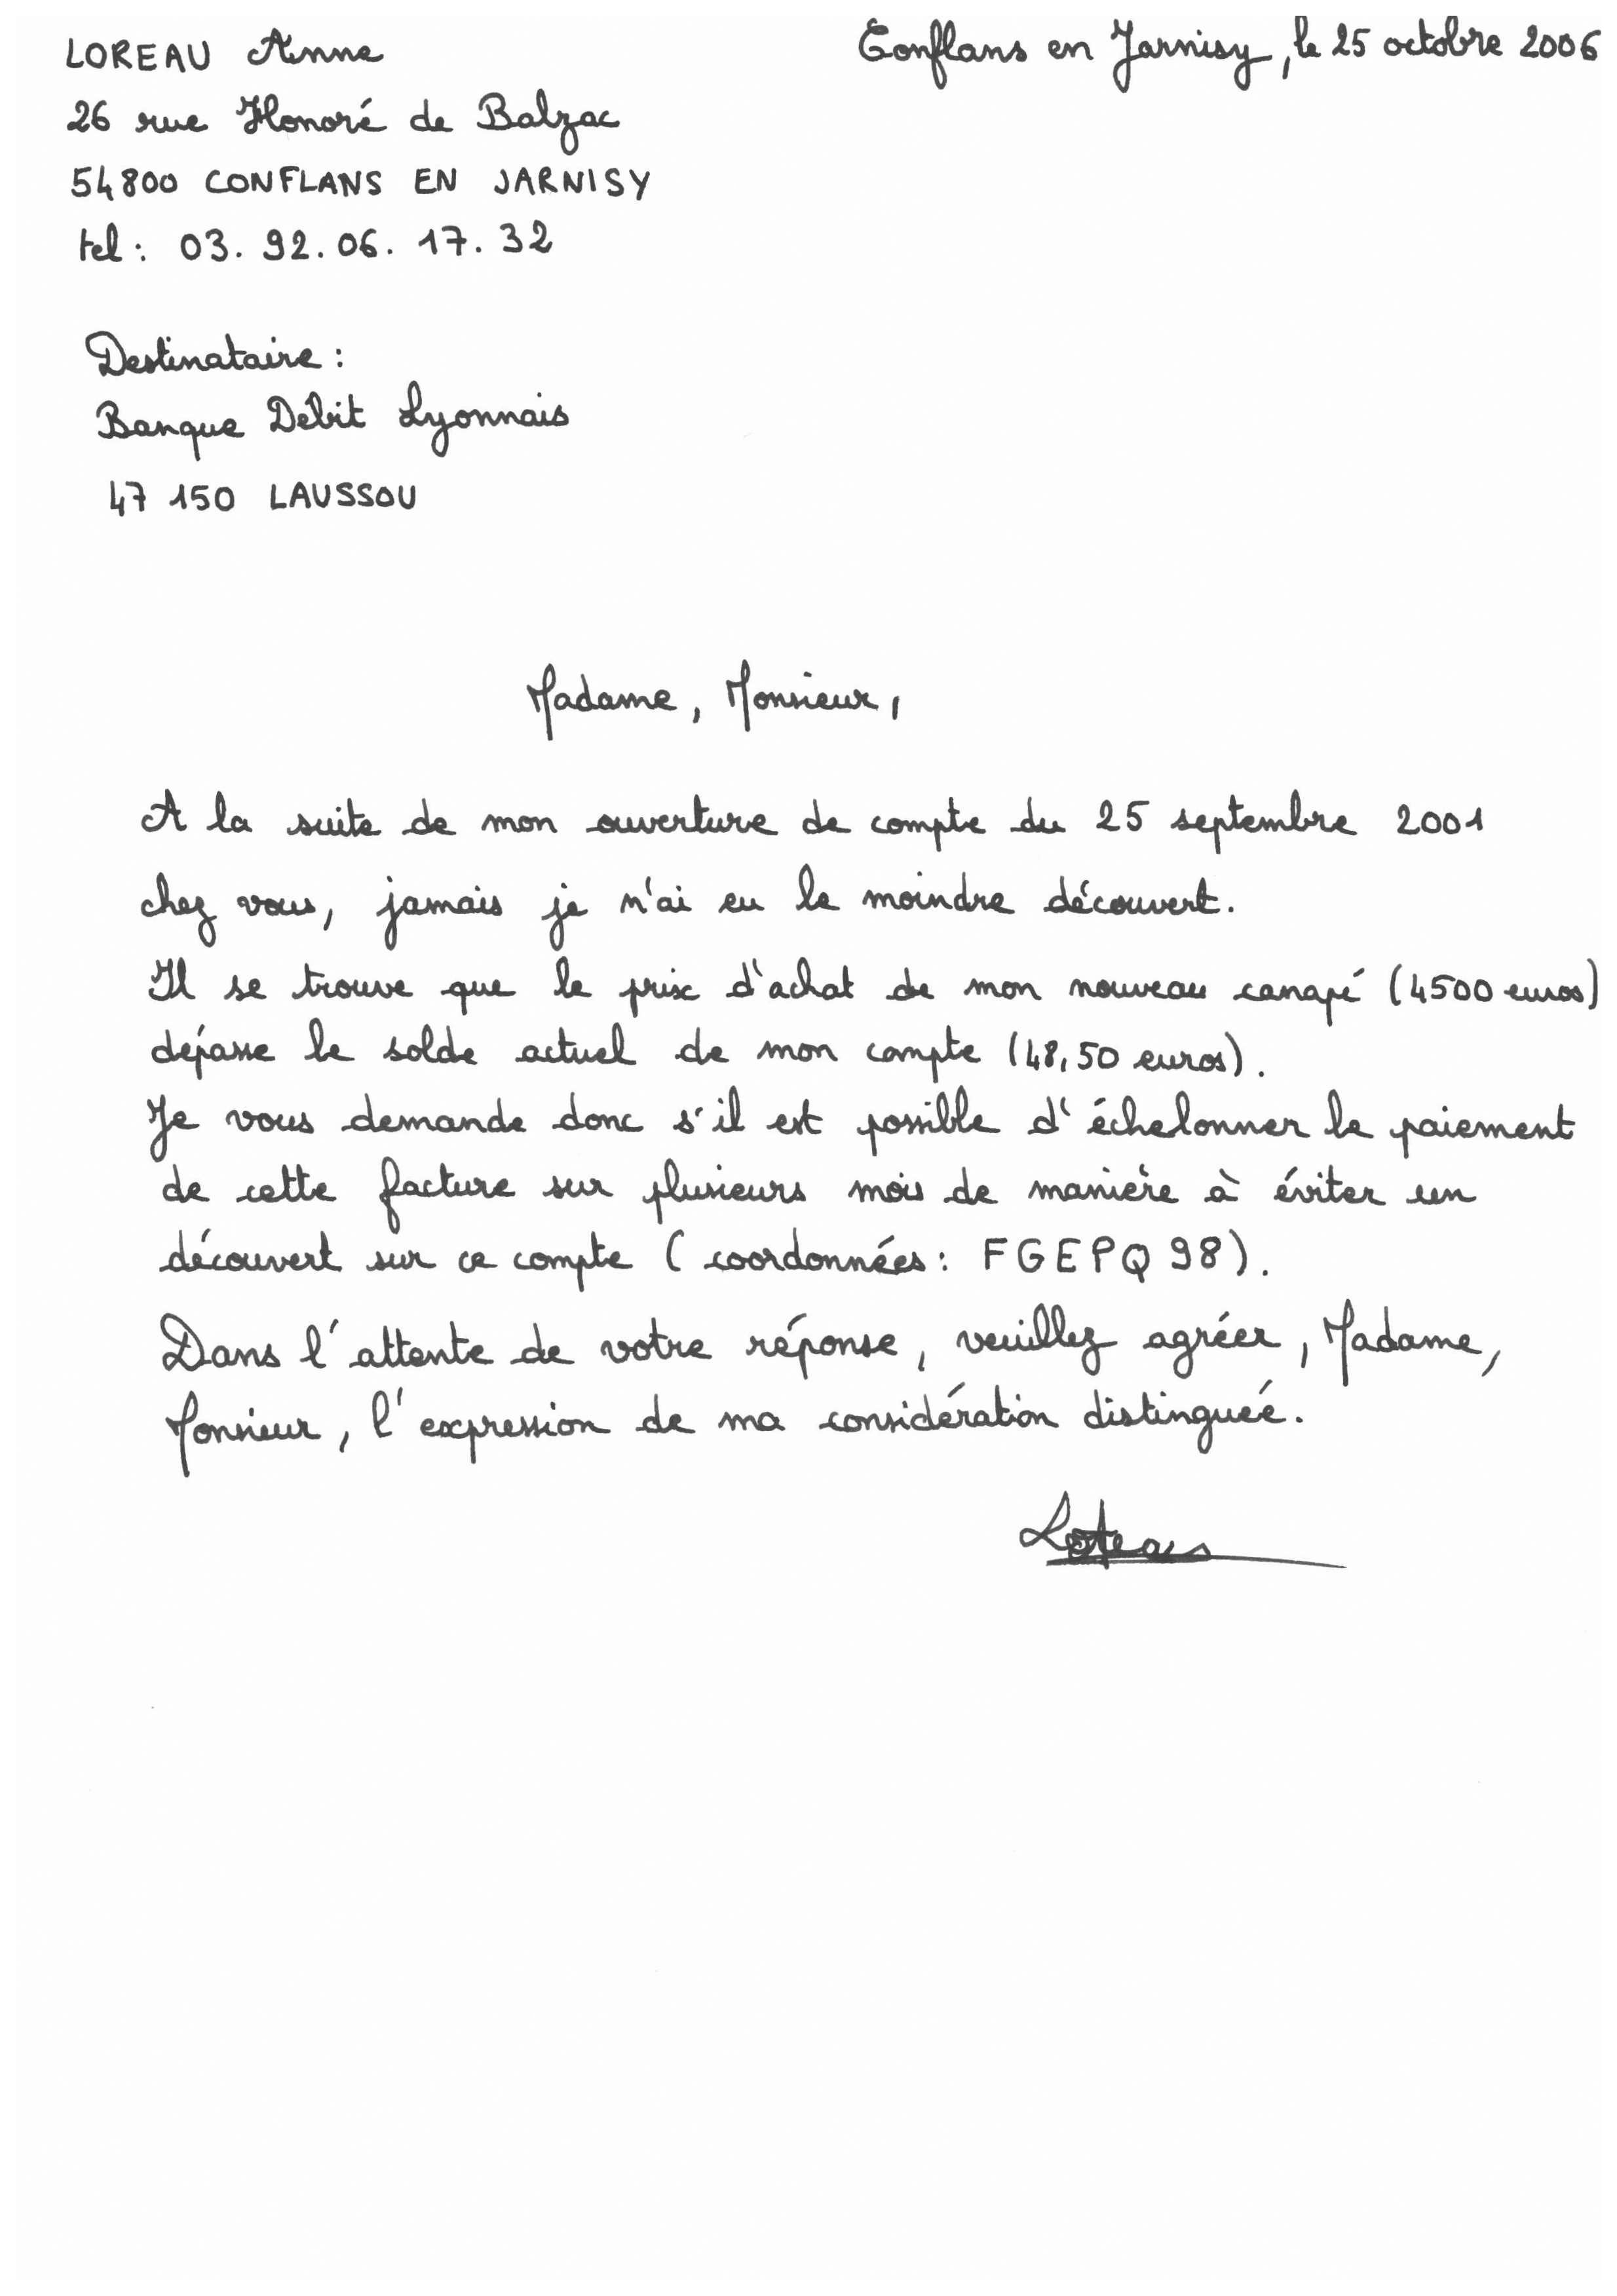 LOREAU Anne
Conflans en Jarnisy, le 25 octobre 2006
26 rue Honoré de Balzac
54800 CONFLANS EN JARNISY
tel : 03. 92. 06. 17. 32
Destinataire :
Banque Débit Lyonnais
47 150 LAUSSOU
Madame, Monsieur,
A la suite de mon ouverture de compte du 25 septembre 2001
chez vous, jamais je n'ai eu le moindre découvert.
Il se trouve que le prix d'achat de mon nouveau canapé (4500 euros)
dépasse le solde actuel de mon compte (48,50 euros).
Je vous demande donc s'il est possible d'échelonner le paiement
de cette facture sur plusieurs mois de manière à éviter un
découvert sur ce compte (coordonnées : FGEPQ98).
Dans l'attente de votre réponse, veuillez agréer, Madame,
Monsieur, l'expression de ma considération distinguée.
Loreau